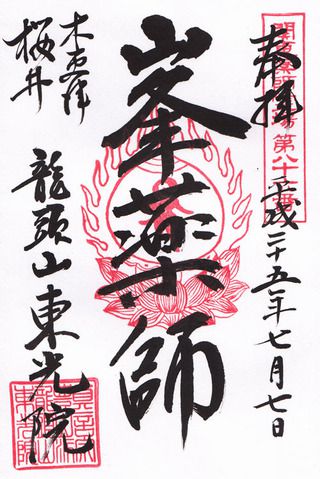 奉拝
平成二十五年七月七日
峯薬師
木更津
桜井
龍頭山東光院